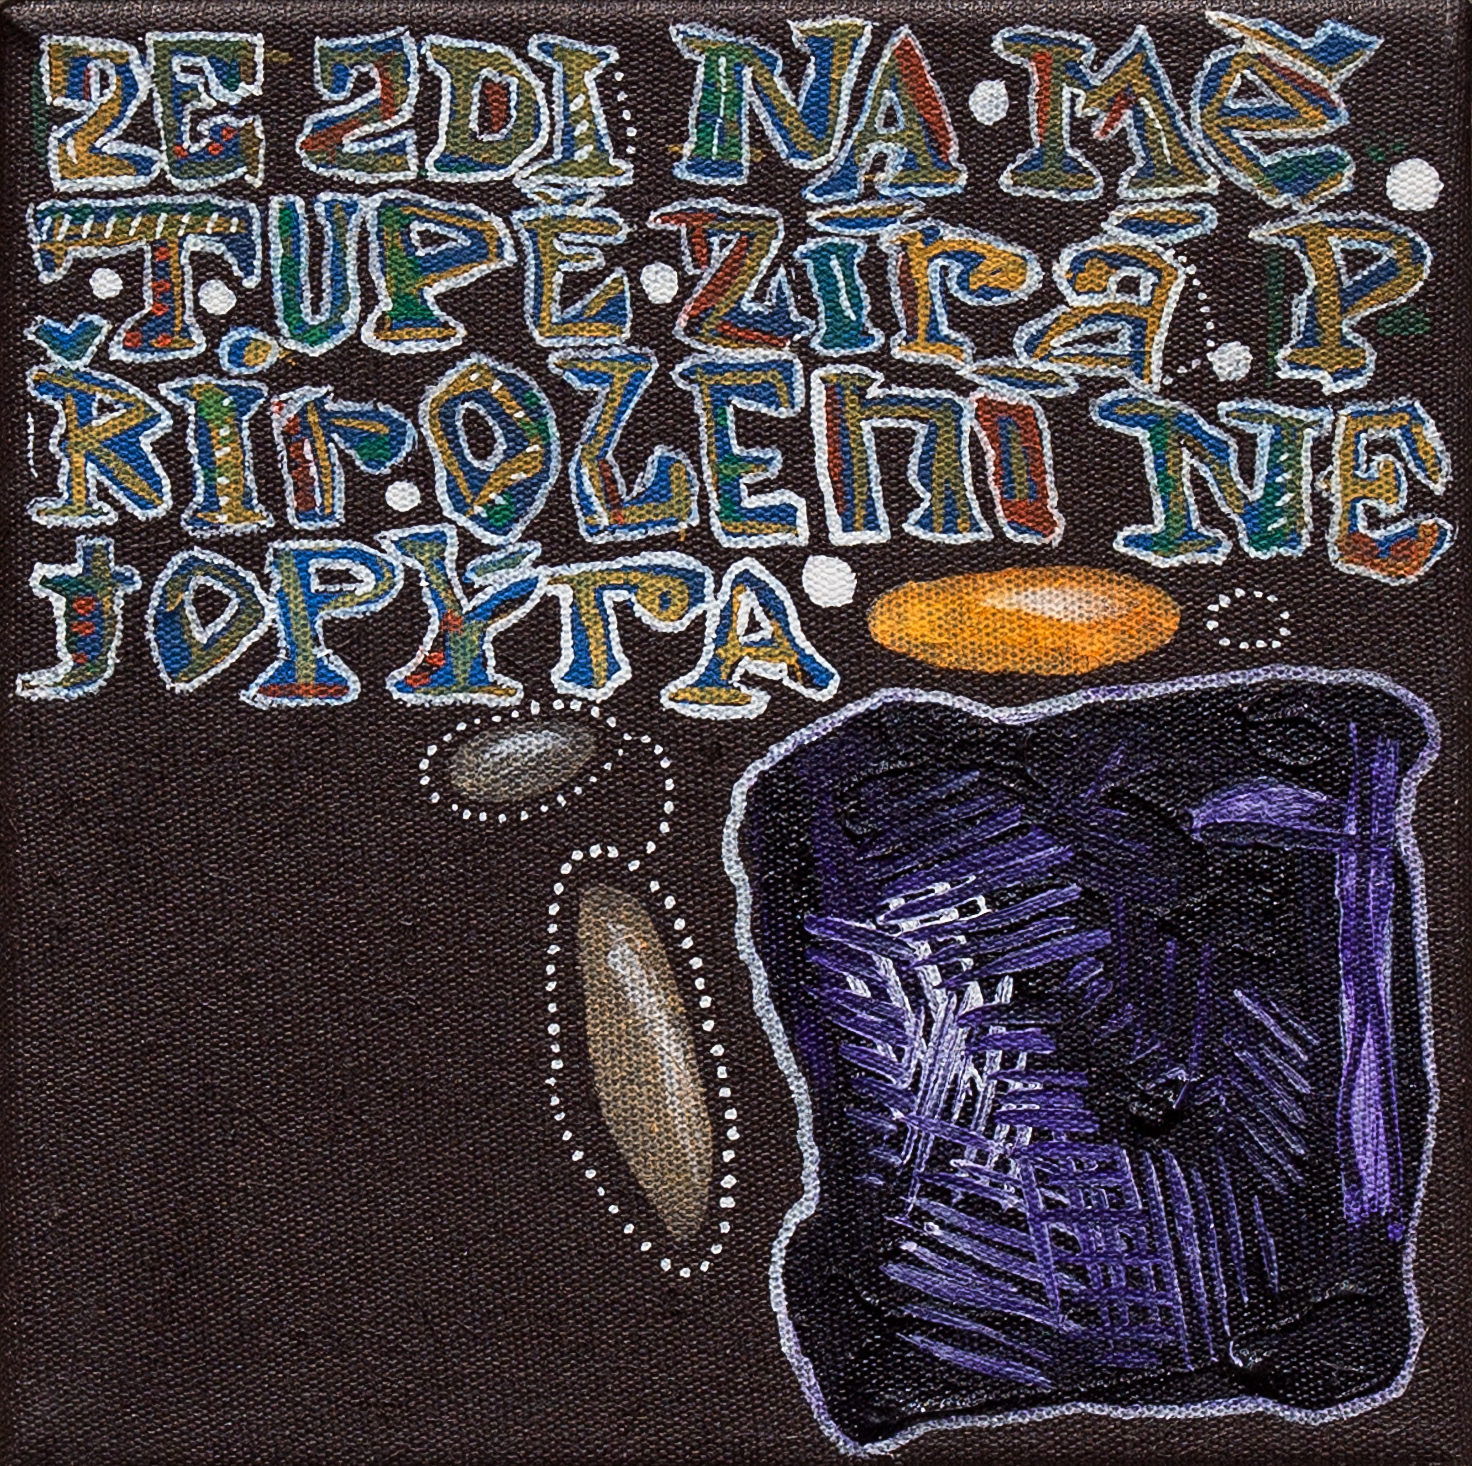 ZE ZDI NA MĚ
TUPĚ ZÍRÁ P
ŘIROZENÍ NE
TOPÝRA